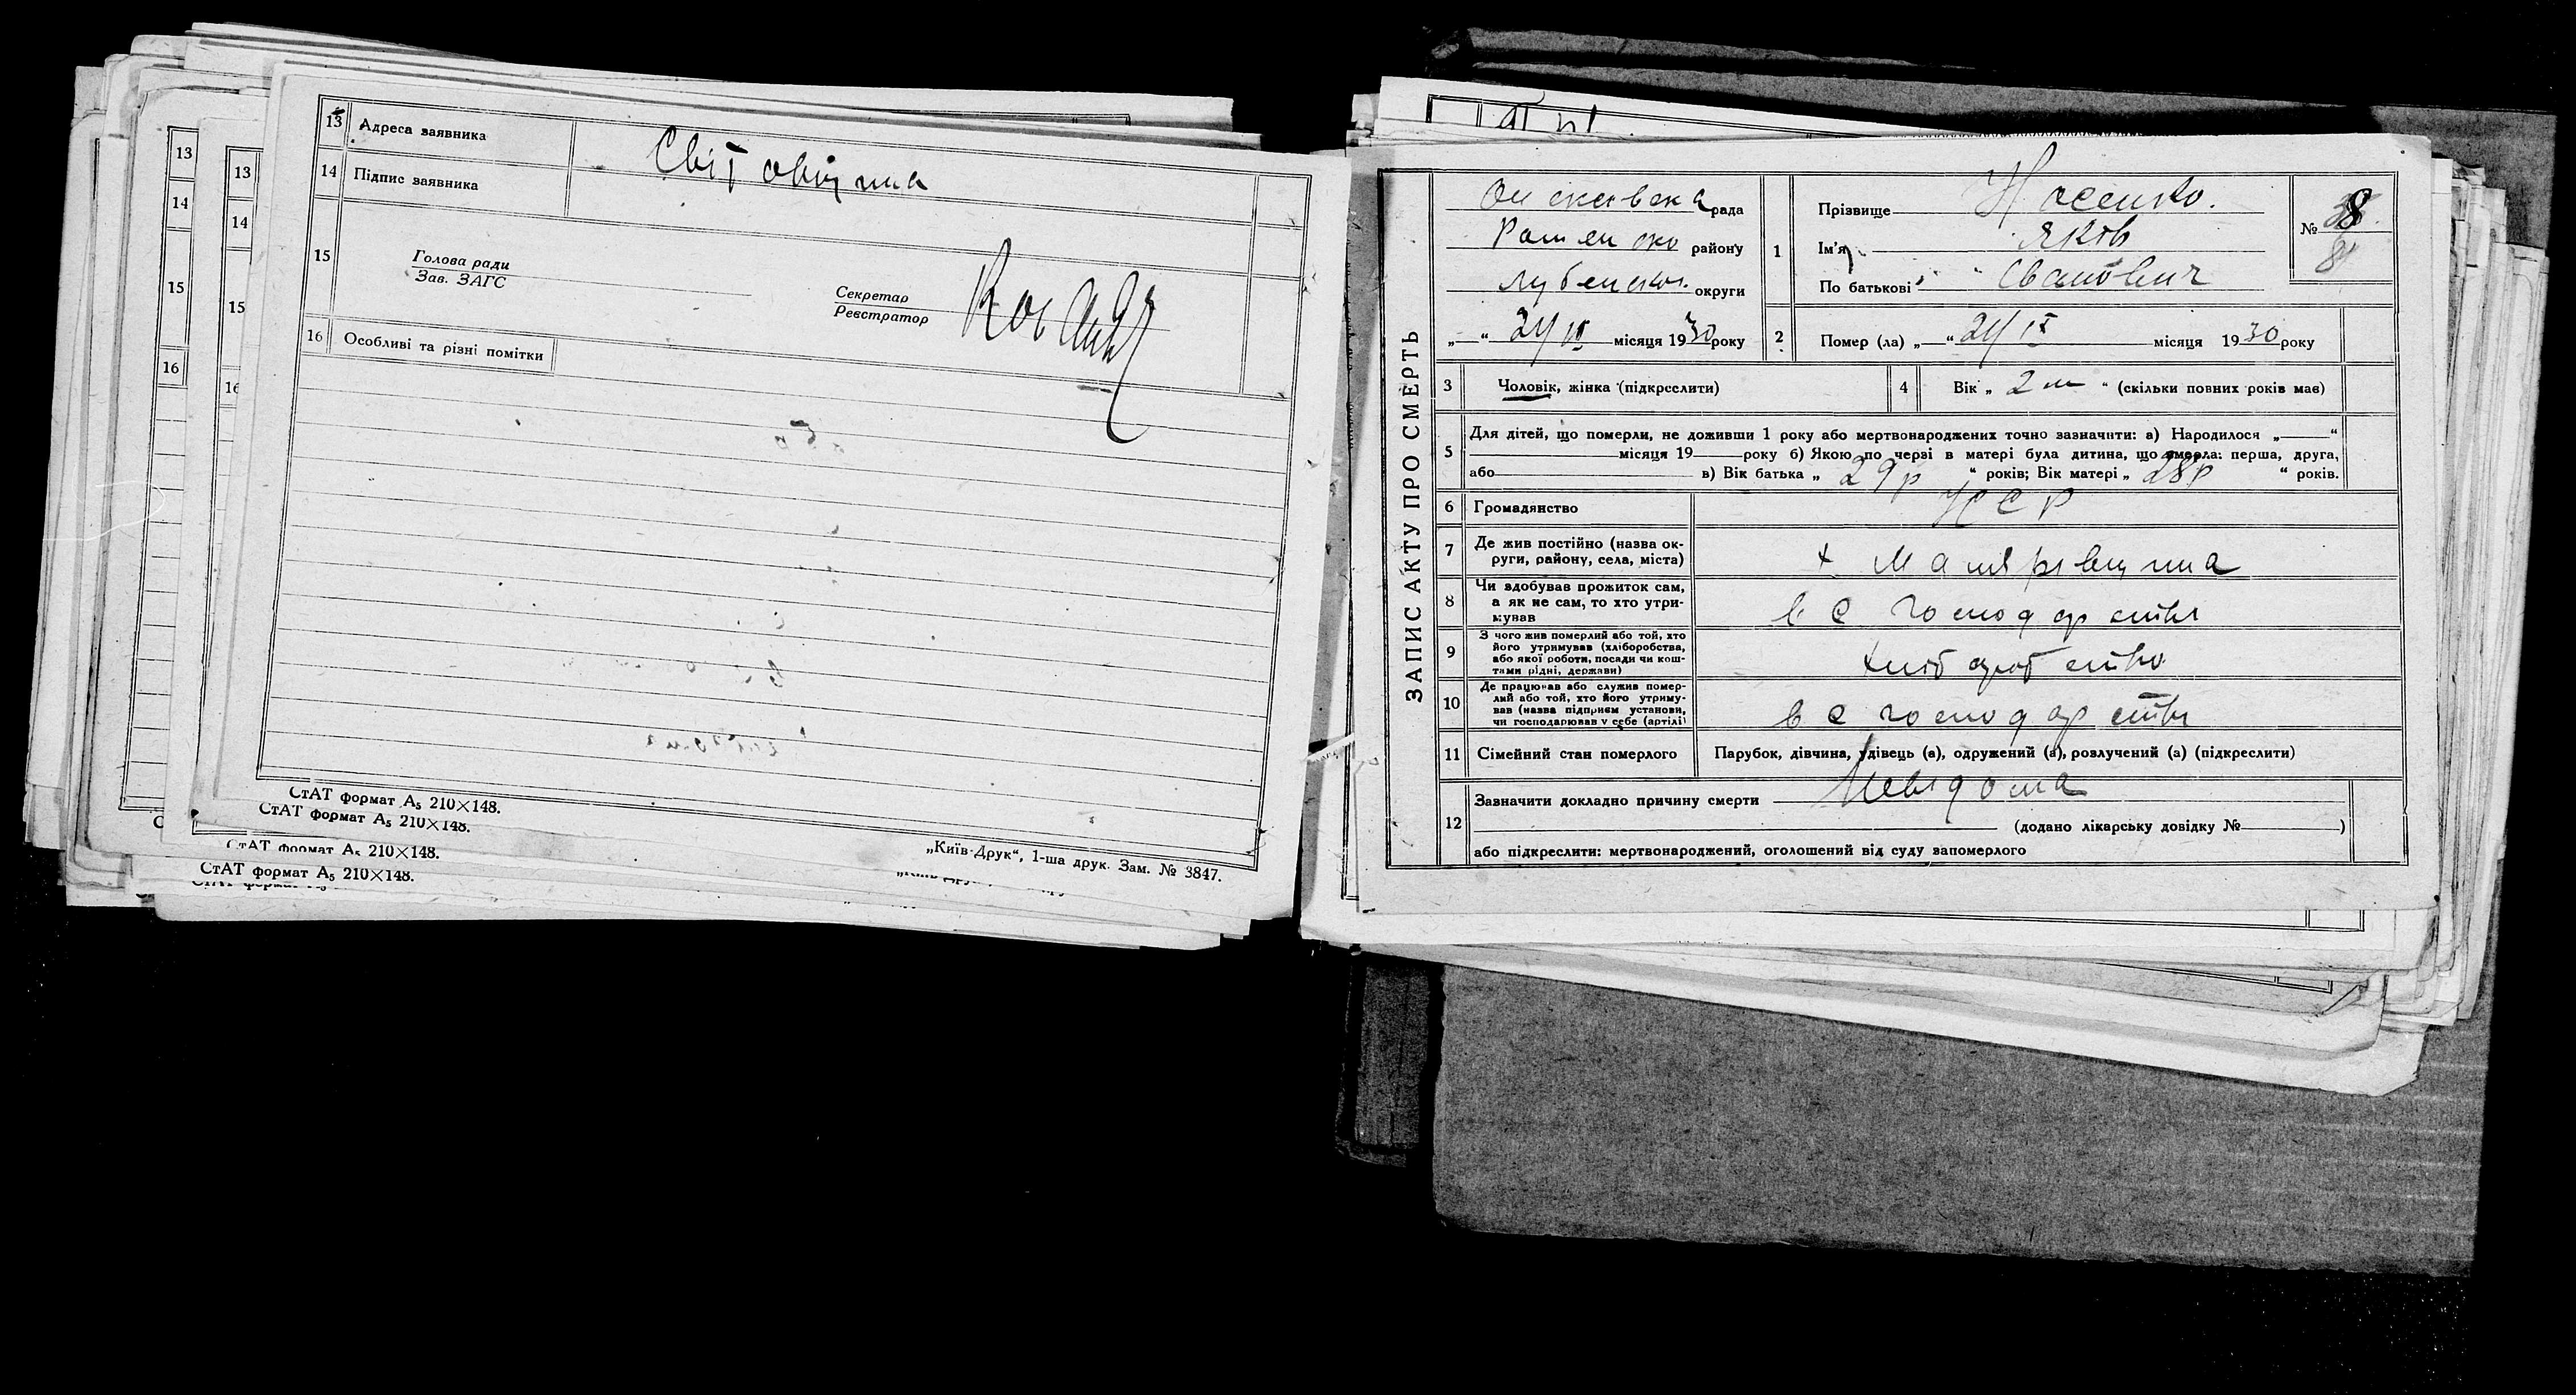 13 Адреса заявника Світовщина
14 Підпис заявника
15 Голова ради
Зав. ЗАГС
Секретар
Реєстратор
16 Особливі та різні помітки
13
14
15
16
13
14
15
СтАТ формат А₅ 210×148.
СтАТ формат А₅ 210×148.
СтАТ формат А₅ 210×148.
СтАТ формат А₅ 210×148.
„Київ-Друк“, 1-ша друк. Зам. № 3847.
ЗАПИС АКТУ ПРО СМЕРТЬ
рада
району
округи
„—“ 24/ІХ місяця 1930 року
1 Прізвище Носенко.
Ім'я Яків
По батькові Іванович
№ 8
8
2 Помер (ла) „—“ 24/ІХ місяця 1930 року
3 Чоловік, жінка (підкреслити)
4 Вік „ 2 м “ (скільки повних років має)
5 Для дітей, що померли, не доживши 1 року або мертвонароджених точно зазначити: а) Народилося „——“
місяця 19—— року б) Якою по черзі в матері була дитина, що вмерла: перша, друга,
або в) Вік батька „ 29 р “ років; Вік матері „ 28 р “ років.
6 Громадянство УСР
7 Де жив постійно (назва ок-
руги, району, села, міста) х
8 Чи здобував прожиток сам,
а як не сам, то хто утри-
мував в с господарстві
9 З чого жив померлий або той, хто
його утримував (хліборобства,
або якої роботи, посади чи кош-
тами рідні, держави) хліборобство
10 Де працював або служив помер-
лий або той, хто його утриму-
вав (назва підприєм установи,
чи господарював у себе (артілі) в с господарстві
11 Сімейний стан померлого Парубок, дівчина, удівець (а), одружений (а), розлучений (а) (підкреслити)
12 Зазначити докладно причину смерти Невідома
(додано лікарську довідку № )
або підкреслити: мертвонароджений, оголошений від суду запомерлого